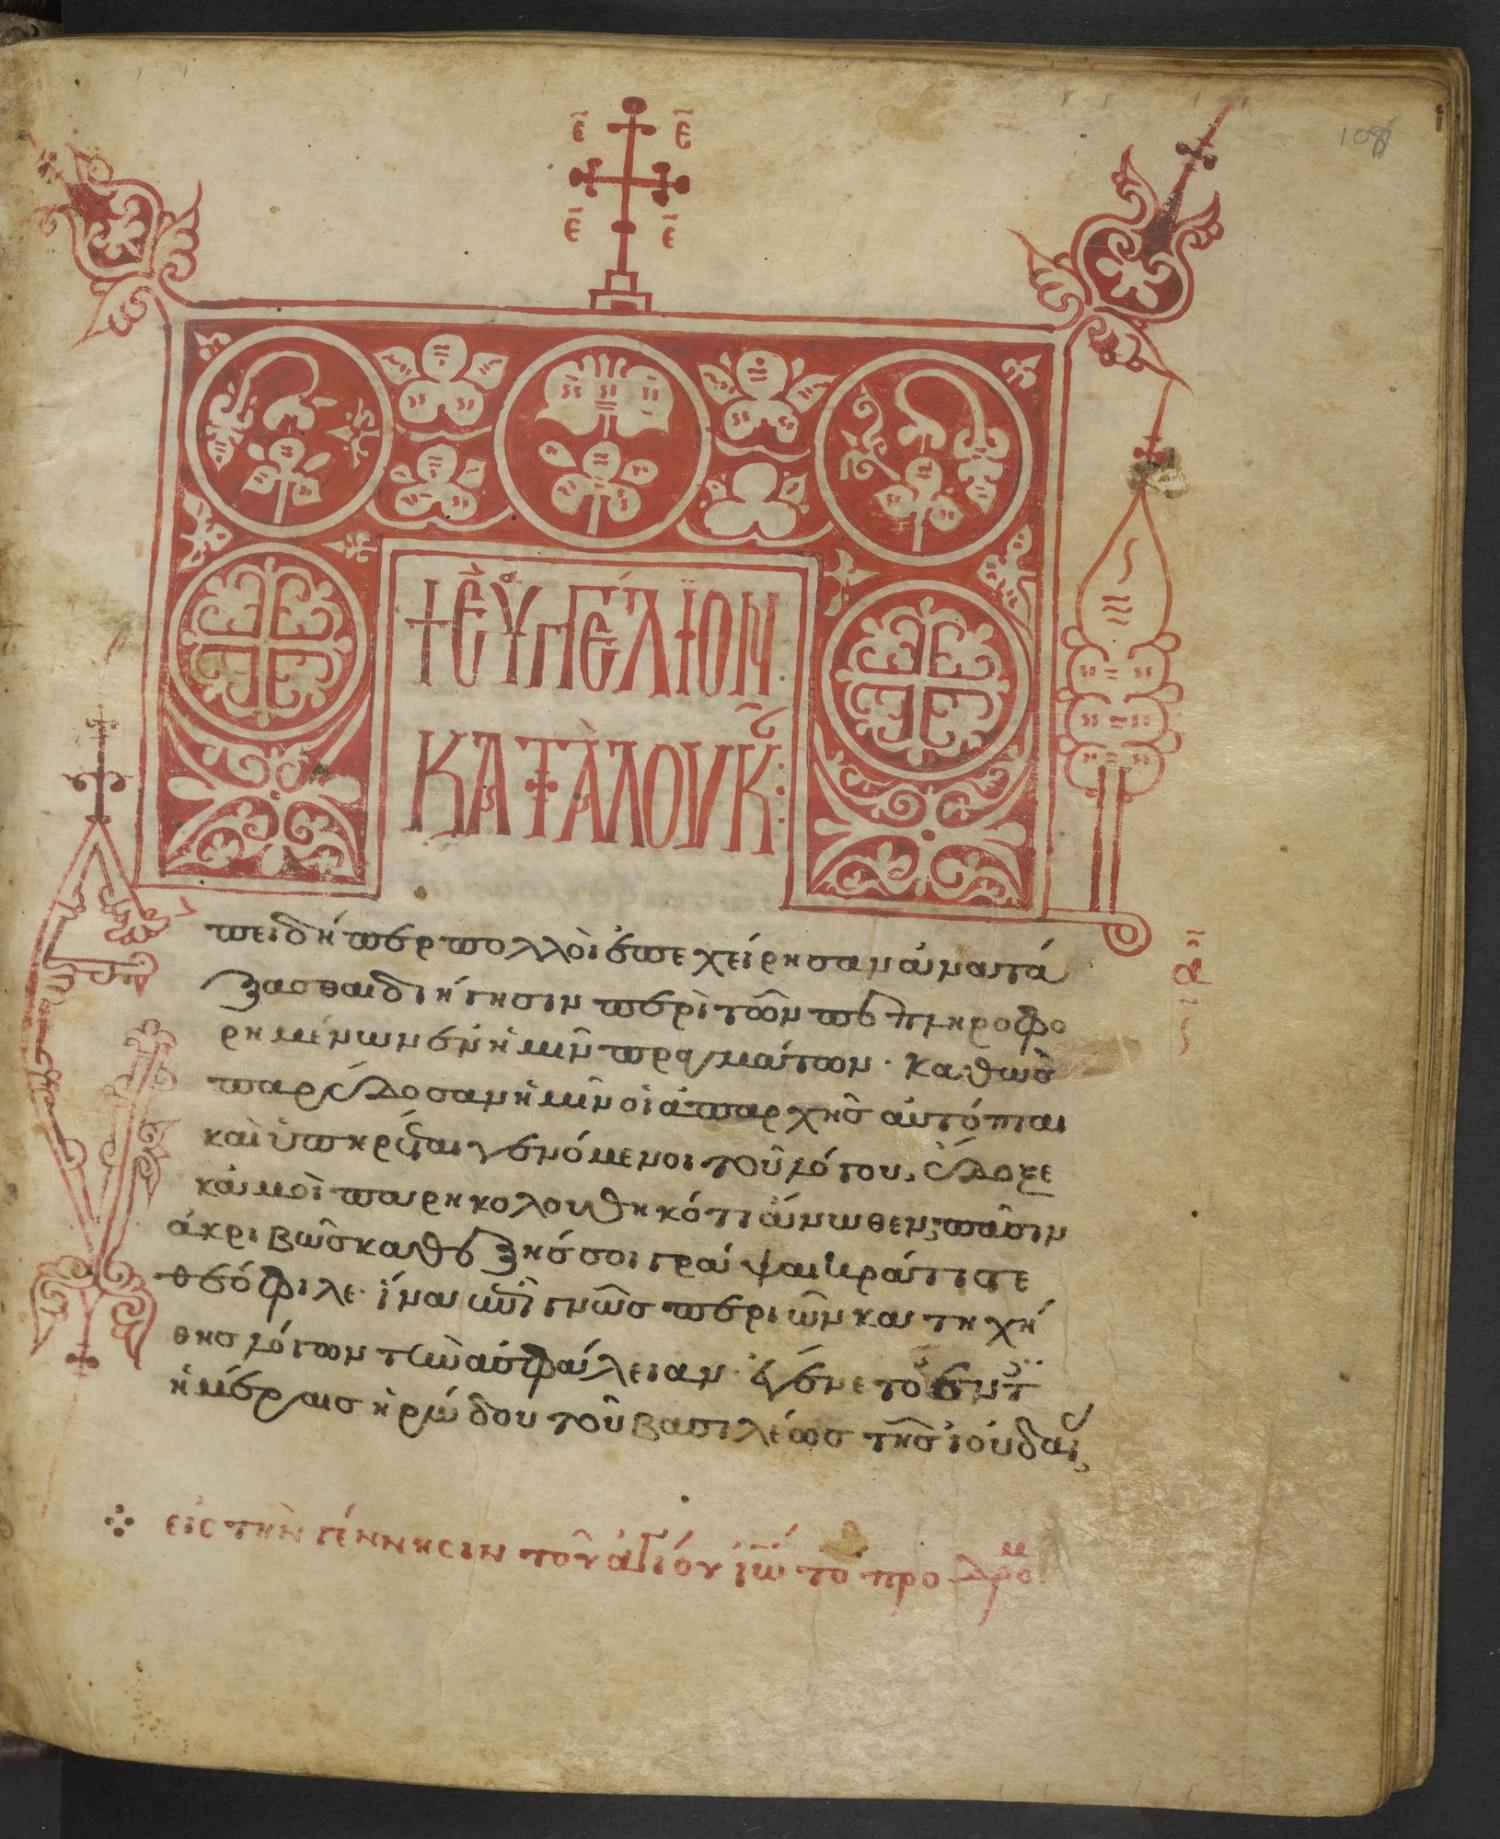 108
ε̄ ε̄
ε̄ ε̄
† ΕΥΑΓΓΕΛΙΟΝ
ΚΑΤΑ ΛΟΥΚ
πειδήπερ πολλοὶ ἐπεχείρησαν ἀνατά
ξασθαι διήγησιν περὶ τῶν πεπληροφο
ρημένων ἐν ἡμῖν πραγμάτων· καθὼς
παρέδοσαν ἡμῖν οἱ ἀπαρχῆς αὐτόπται
καὶ ὑπηρέται γενόμενοι τοῦ λόγου, ἔδοξε
κἀμοὶ παρηκολουθηκότι ἄνωθεν πᾶσιν
ἀκριβῶς καθεξῆς σοι γράψαι κράτιστε
θεόφιλε· ἵνα ἐπιγνῶς περὶ ὧν κατηχή
θης λόγων τὴν ἀσφάλειαν· Ἐγένετο ἐν τ
ἡμέραις ἡρώδου τοῦ βασιλέως τῆς ἰουδαί
εἰς τὴν γέννησιν τοῦ ἁγίου ἰω το προδρο